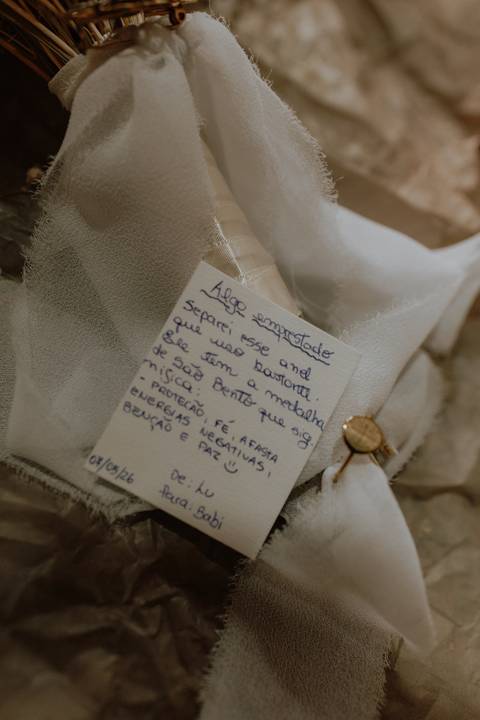 Algo emprestado
Separei esse anel
que uso bastante.
Ele tem a medalha
de São Bento que sig-
nifica:
- PROTEÇÃO, FÉ, AFASTA
ENERGIAS NEGATIVAS,
BENÇÃO E PAZ
07/03/26
De: Lu
Para: Babi